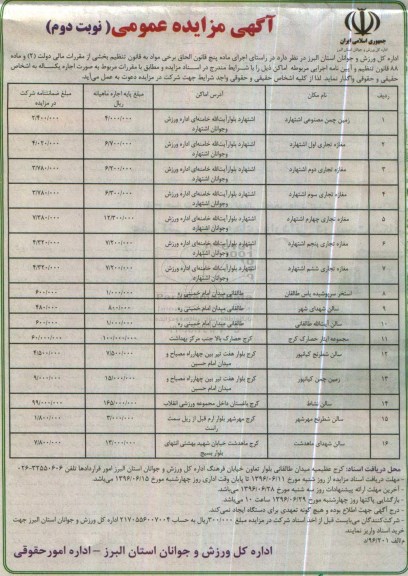 جمهوری اسلامی ایران
آگهی مزایده عمومی ( نوبت دوم )
اداره کل ورزش و جوانان استان البرز در نظر دارد در راستای اجرای ماده پنج قانون الحاق برخی مواد به قانون تنظیم بخشی از مقررات مالی دولت (۲) و ماده
۸۸ قانون تنظیم و آیین نامه اجرایی مربوطه اماکن ذیل را با شرایط مندرج در اسناد مزایده و مطابق با مقررات مربوط به صورت اجاره یکساله به اشخاص
حقیقی و حقوقی واگذار نماید. لذا از کلیه اشخاص حقیقی و حقوقی واجد شرایط جهت شرکت در مزایده دعوت به عمل می‌آید
ردیف نام مکان آدرس اماکن مبلغ پایه اجاره ماهیانه ریال مبلغ ضمانتنامه شرکت در مزایده
۱ زمین چمن مصنوعی اشتهارد اشتهارد بلوار آیت‌الله خامنه‌ای اداره ورزش وجوانان اشتهارد ۴/۰۰۰/۰۰۰ ۲/۴۰۰/۰۰۰
۲ مغازه تجاری اول اشتهارد اشتهارد بلوار آیت‌الله خامنه‌ای اداره ورزش وجوانان اشتهارد ۶/۷۰۰/۰۰۰ ۴/۰۲۰/۰۰۰
۳ مغازه تجاری دوم اشتهارد اشتهارد بلوار آیت‌الله خامنه‌ای اداره ورزش وجوانان اشتهارد ۶/۳۰۰/۰۰۰ ۳/۷۸۰/۰۰۰
۴ مغازه تجاری سوم اشتهارد اشتهارد بلوار آیت‌الله خامنه‌ای اداره ورزش وجوانان اشتهارد ۶/۳۰۰/۰۰۰ ۳/۷۸۰/۰۰۰
۵ مغازه تجاری چهارم اشتهارد اشتهارد بلوار آیت‌الله خامنه‌ای اداره ورزش وجوانان اشتهارد
۶ مغازه تجاری پنجم اشتهارد اشتهارد بلوار آیت‌الله خامنه‌ای اداره ورزش وجوانان اشتهارد ۷/۲۰۰/۰۰۰ ۴/۳۲۰/۰۰۰
۷ مغازه تجاری ششم اشتهارد اشتهارد بلوار آیت‌الله خامنه‌ای اداره ورزش وجوانان اشتهارد ۷/۲۰۰/۰۰۰ ۴/۳۲۰/۰۰۰
۸ استخر سرپوشیده یاس طالقان طالقانی میدان امام خمینی ره ۱/۰۰۰/۰۰۰ ۶۰۰/۰۰۰
۹ سالن شهدای شهر طالقانی میدان امام خمینی ره ۸۰۰/۰۰۰ ۴۸۰/۰۰۰
۱۰ سالن آیت‌الله طالقانی طالقانی میدان امام خمینی ره ۱/۰۰۰/۰۰۰ ۶۰۰/۰۰۰
۱۱ مجموعه ایثار حصارک کرج کرج حصارک بالا جنب مرکز بهداشت ۱۰۰/۰۰۰/۰۰۰ ۶۰/۰۰۰/۰۰۰
۱۲ سالن شطرنج کیانپور کرج بلوار هفت تیر بین چهارراه مصباح و میدان امام حسین ۷/۵۰۰/۰۰۰ ۴/۵۰۰/۰۰۰
۱۳ زمین چمن کیانپور کرج بلوار هفت تیر بین چهارراه مصباح و میدان امام حسین ۱۵/۰۰۰/۰۰۰ ۹/۰۰۰/۰۰۰
۱۴ سالن نشاط کرج باغستان داخل مجموعه ورزشی انقلاب ۱۶۵/۰۰۰/۰۰۰ ۹۹/۰۰۰/۰۰۰
۱۵ سالن شطرنج مهرشهر کرج مهرشهر بلوار ارم قبل از ریل سمت راست ۳/۰۰۰/۰۰۰ ۱/۸۰۰/۰۰۰
۱۶ سالن شهدای ماهدشت کرج ماهدشت خیابان شهید بهشتی انتهای بلوار بسیج ۱۳/۰۰۰/۰۰۰ ۷/۸۰۰/۰۰۰
محل دریافت اسناد: کرج عظیمیه میدان طالقانی بلوار تعاون خیابان فرهنگ اداره کل ورزش و جوانان استان البرز امور قراردادها تلفن ۳۲۵۵۰۶۰۶-۰۲۶
-مهلت دریافت اسناد مزایده از روز شنبه مورخ ۱۳۹۶/۰۶/۱۱ تا پایان وقت اداری روز چهارشنبه مورخ ۱۳۹۶/۰۶/۱۵ می‌باشد.
- آخرین مهلت ارائه پیشنهادات روز سه شنبه مورخ ۱۳۹۶/۰۶/۲۸ می‌باشد.
- بازگشایی پاکتها روز چهارشنبه مورخ ۱۳۹۶/۰۶/۲۹ ساعت ۱۰ می‌باشد.
- درج آگهی صلاح اطلاع بوده و هیچ گونه تعهدی برای دستگاه ایجاد نمی‌کند.
-شرکت‌کنندگان می‌بایست قبل از اخذ اسناد شرکت در مزایده مبلغ ۳۰۰/۰۰۰ریال به حساب ۲۱۷۰۵۵۶۰۰۷۰۰۴ اداره کل ورزش و جوانان استان البرز جهت
خرید اسناد واریز نمایند.
م/الف ۹۶/۲۰۱/د
اداره کل ورزش و جوانان استان البرز - اداره امور حقوقی